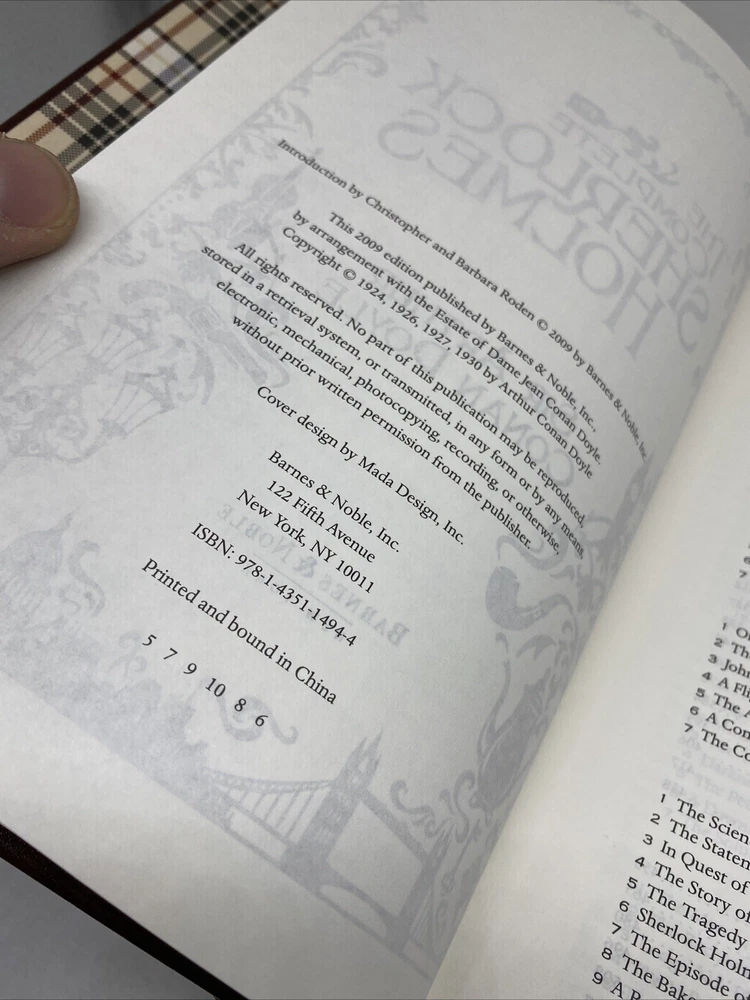 Introduction by Christopher and Barbara Roden © 2009 by Barnes & Noble, Inc.
This 2009 edition published by Barnes & Noble, Inc.
by arrangement with the Estate of Dame Jean Conan Doyle.
Copyright © 1924, 1926, 1927, 1930 by Arthur Conan Doyle
All rights reserved. No part of this publication may be reproduced,
stored in a retrieval system, or transmitted, in any form or by any means,
electronic, mechanical, photocopying, recording, or otherwise,
without prior written permission from the publisher.
Cover design by Mada Design, Inc.
Barnes & Noble, Inc.
122 Fifth Avenue
New York, NY 10011
ISBN: 978-1-4351-1494-4
Printed and bound in China
5 7 9 10 8 6
THE COMPLETE
SHERLOCK
HOLMES
CONAN DOYLE
BARNES & NOBLE
6
7
1
2 Th
3 John
4 A Fli
5 The A
6 A Con
7 The Co
1 The Scien
2 The Statem
3 In Quest of
4 The Story of
5 The Tragedy
6 Sherlock Holm
7 The Episode of
8 The Bak
9 A